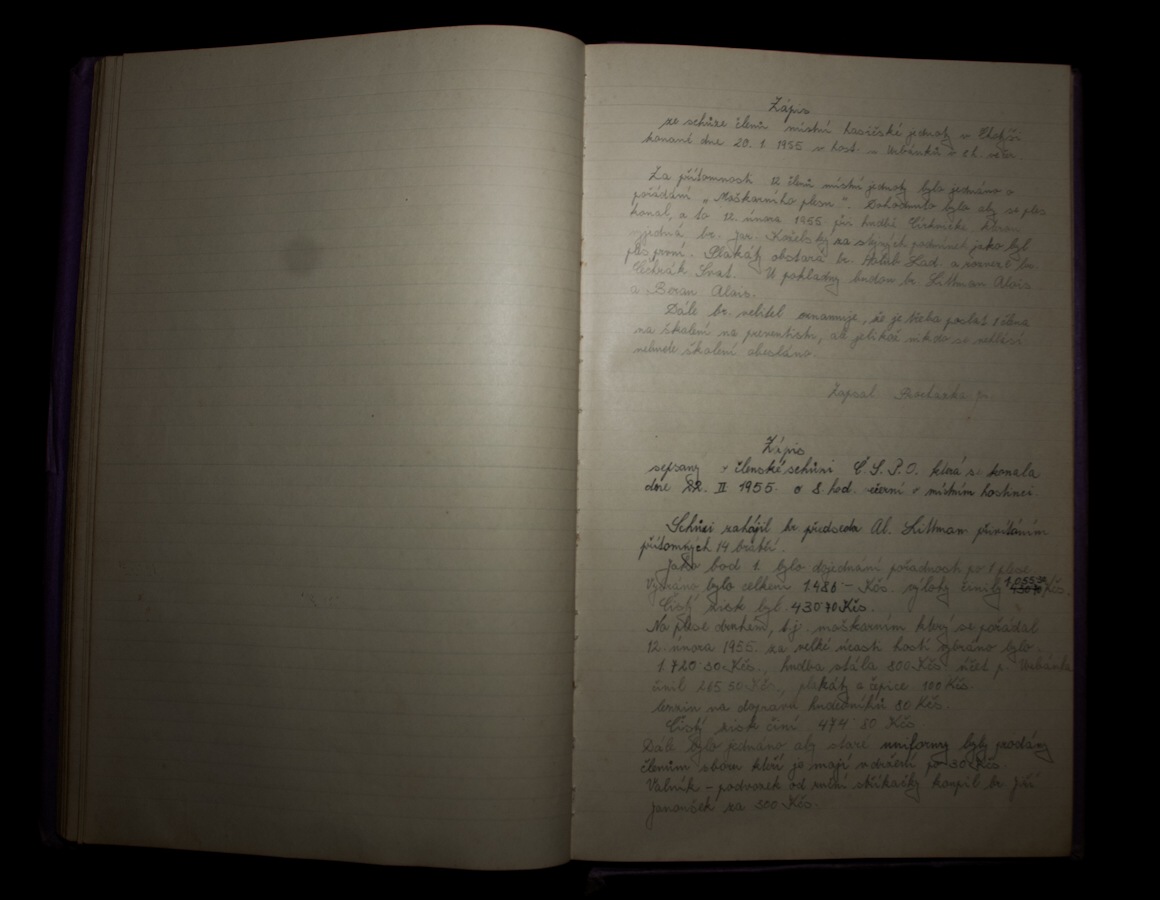 Zápis
ze schůze členů místní hasičské jednoty v
konané dne 20. 1. 1955 v host. u Urbánků v 8 h. večer.
Za přítomnosti 12 členů místní jednoty bylo jednáno o
pořádání „Maškarního plesu“. Dohodnuto bylo aby se ples
konal, a to 12. února 1955 při hudbě kterou
zjedná br. Jar. Koželský za stejných podmínek jako byl
ples první. Plakáty obstará br. Holub Lad. a rozveze br.
Svat. U pokladny budou br. Littman Alois
a Beran Alois.
Dále br. velitel oznamuje, že je třeba poslat 1 člena
na školení na preventistu, ale jelikož nikdo se nehlásí
nebude školení obesláno.
Zapsal Procházka
Zápis
sepsaný v členské schůzi Č.S.P.O. která se konala
dne 22. II 1955. o 8. hod. večerní v místním hostinci.
Schůzi zahájil br předseda Al. Littmam přivítáním
přítomných 14 bratří.
Jako bod 1. bylo dojednání pořadnosti po 1 plese.
Vybráno bylo celkem 1.486 – Kčs. výlohy činily Kčs.
Čistý zisk byl 430 70 Kčs.
Na plese druhém, t.j. maškarním který se pořádal
12. února 1955. za velké účasti hostí vybráno bylo
1.720 30 Kčs., hudba stála 800 Kčs účet p. Urbánka
činil 265.50 Kčs., plakáty a čepice 100 Kčs.
benzin na dopravu hudebníků 80 Kčs.
Čistý zisk činí 474 80 Kčs.
Dále bylo jednáno aby staré uniformy byly prodány
členům sboru kteří je mají v držení po 30 Kčs.
Valník – podvozek od stříkačky koupil br. Jiří
Janoušek za 500 Kčs.